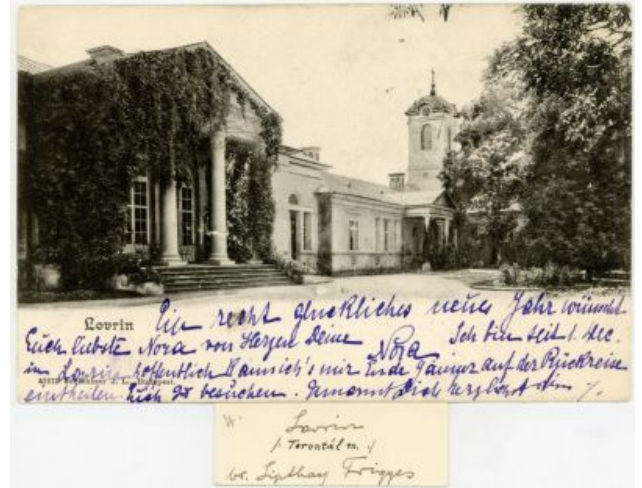 Lovrin
Ein recht glückliches neues Jahr wünscht
Euch liebste Nora von Herzen Deine Nora Ich bin seit 1. Dec.
in Lovrin hoffentlich kann ich's mir Ende Jänner auf der Rückreise
eintheilen Euch zu besuchen. Umarmt Dich herzlichst
Budapest.
Lovrin
/: Torontál m. :/
br. Lipthay Frigyes